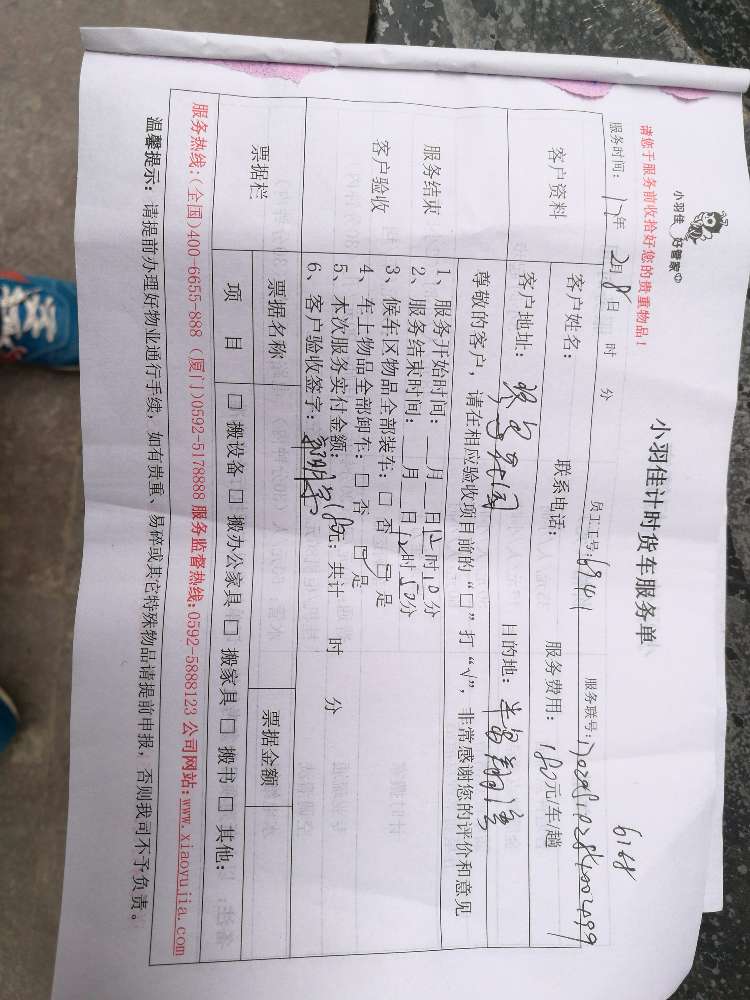 小羽佳 好管家
小羽佳计时货车服务单
6168
请您于服务前收拾好您的贵重物品！
员工工号：6941
服务联号：
服务时间：17年 2月 8日 时 分
客户资料
客户姓名：
联系电话：
服务费用：180元/车/趟
客户地址：
目的地：
尊敬的客户，请在相应验收项目前的“□”打“√”，非常感谢您的评价和意见
服务结束
客户验收
1、服务开始时间：__月__日12时10分
2、服务结束时间：__月__日12时50分
3、候车区物品全部装车：□ 否 □ 是
4、车上物品全部卸车：□ 否 □ 是
5、本次服务实付金额：180元；共计 时 分
6、客户验收签字：
票据栏
票据名称
票据金额
项 目
□ 搬设备 □ 搬办公家具 □ 搬家具 □ 搬书 □ 其他：
服务热线：(全国)400-6655-888 (厦门)0592-5178888 服务监督热线：0592-5888123 公司网站：www.xiaoyujia.com
温馨提示：请提前办理好物业通行手续，如有贵重、易碎或其它特殊物品请提前申报，否则我司不予负责。